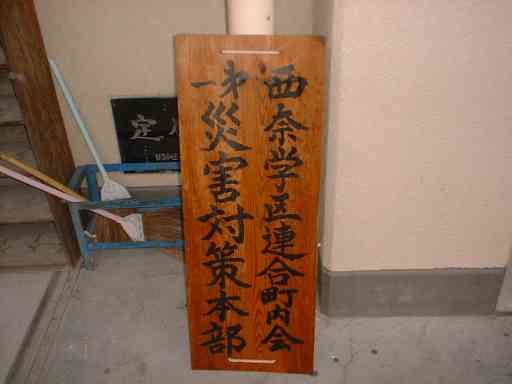 西奈学区連合町内会
第一災害対策本部
定